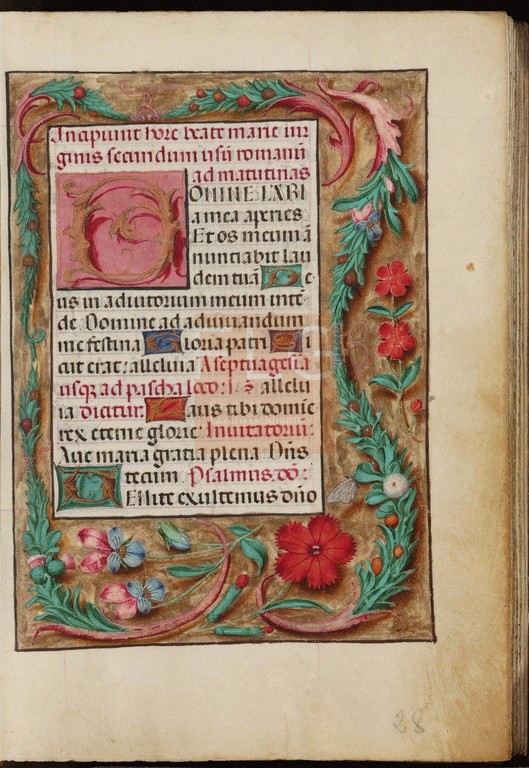 Incipiunt hore beate marie vir
ginis secundum usū romanū
ad matutinas
DOMINE LABI
a mea aperies
Et os meum ā
nunciabit lau
dem tuā De
us in adiutorium meum inte
de: Domine ad adiuvandum
me festina Gloria patri Si
cut erat: alleluia A septuagesia
usq; ad pascha loco:
allelu
ia dicitur Laus tibi domine
rex eterne glorie Invitatoriū:
Ave maria gratia plena Dn̄s
tecum Psalmus dd:
Venite exultemus dn̄o
28